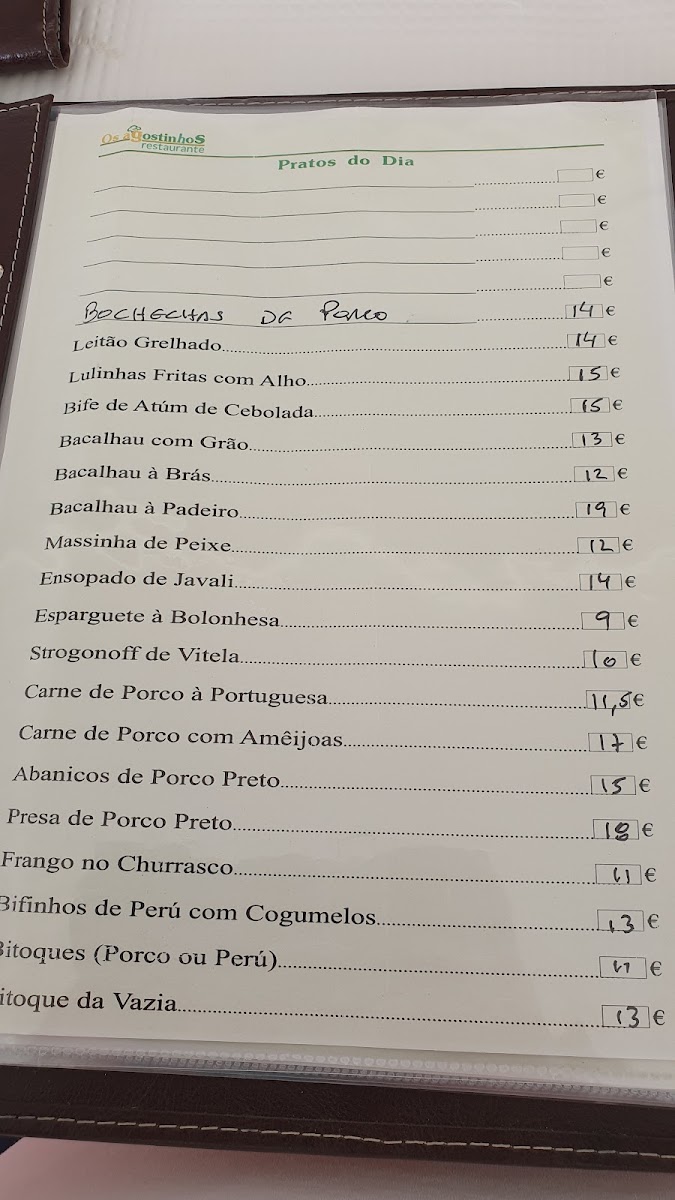 Os agostinhoS
restaurante
Pratos do Dia
€
€
€
€
€
BOCHECHAS DE PORCO 14 €
Leitão Grelhado 14 €
Lulinhas Fritas com Alho 15 €
Bife de Atúm de Cebolada 15 €
Bacalhau com Grão 13 €
Bacalhau à Brás 12 €
Bacalhau à Padeiro 19 €
Massinha de Peixe 12 €
Ensopado de Javali 14 €
Esparguete à Bolonhesa 9 €
Strogonoff de Vitela 10 €
Carne de Porco à Portuguesa 11,5 €
Carne de Porco com Amêijoas 17 €
Abanicos de Porco Preto 15 €
Presa de Porco Preto 18 €
Frango no Churrasco 11 €
Bifinhos de Perú com Cogumelos 13 €
Bitoques (Porco ou Perú) 11 €
itoque da Vazia 13 €